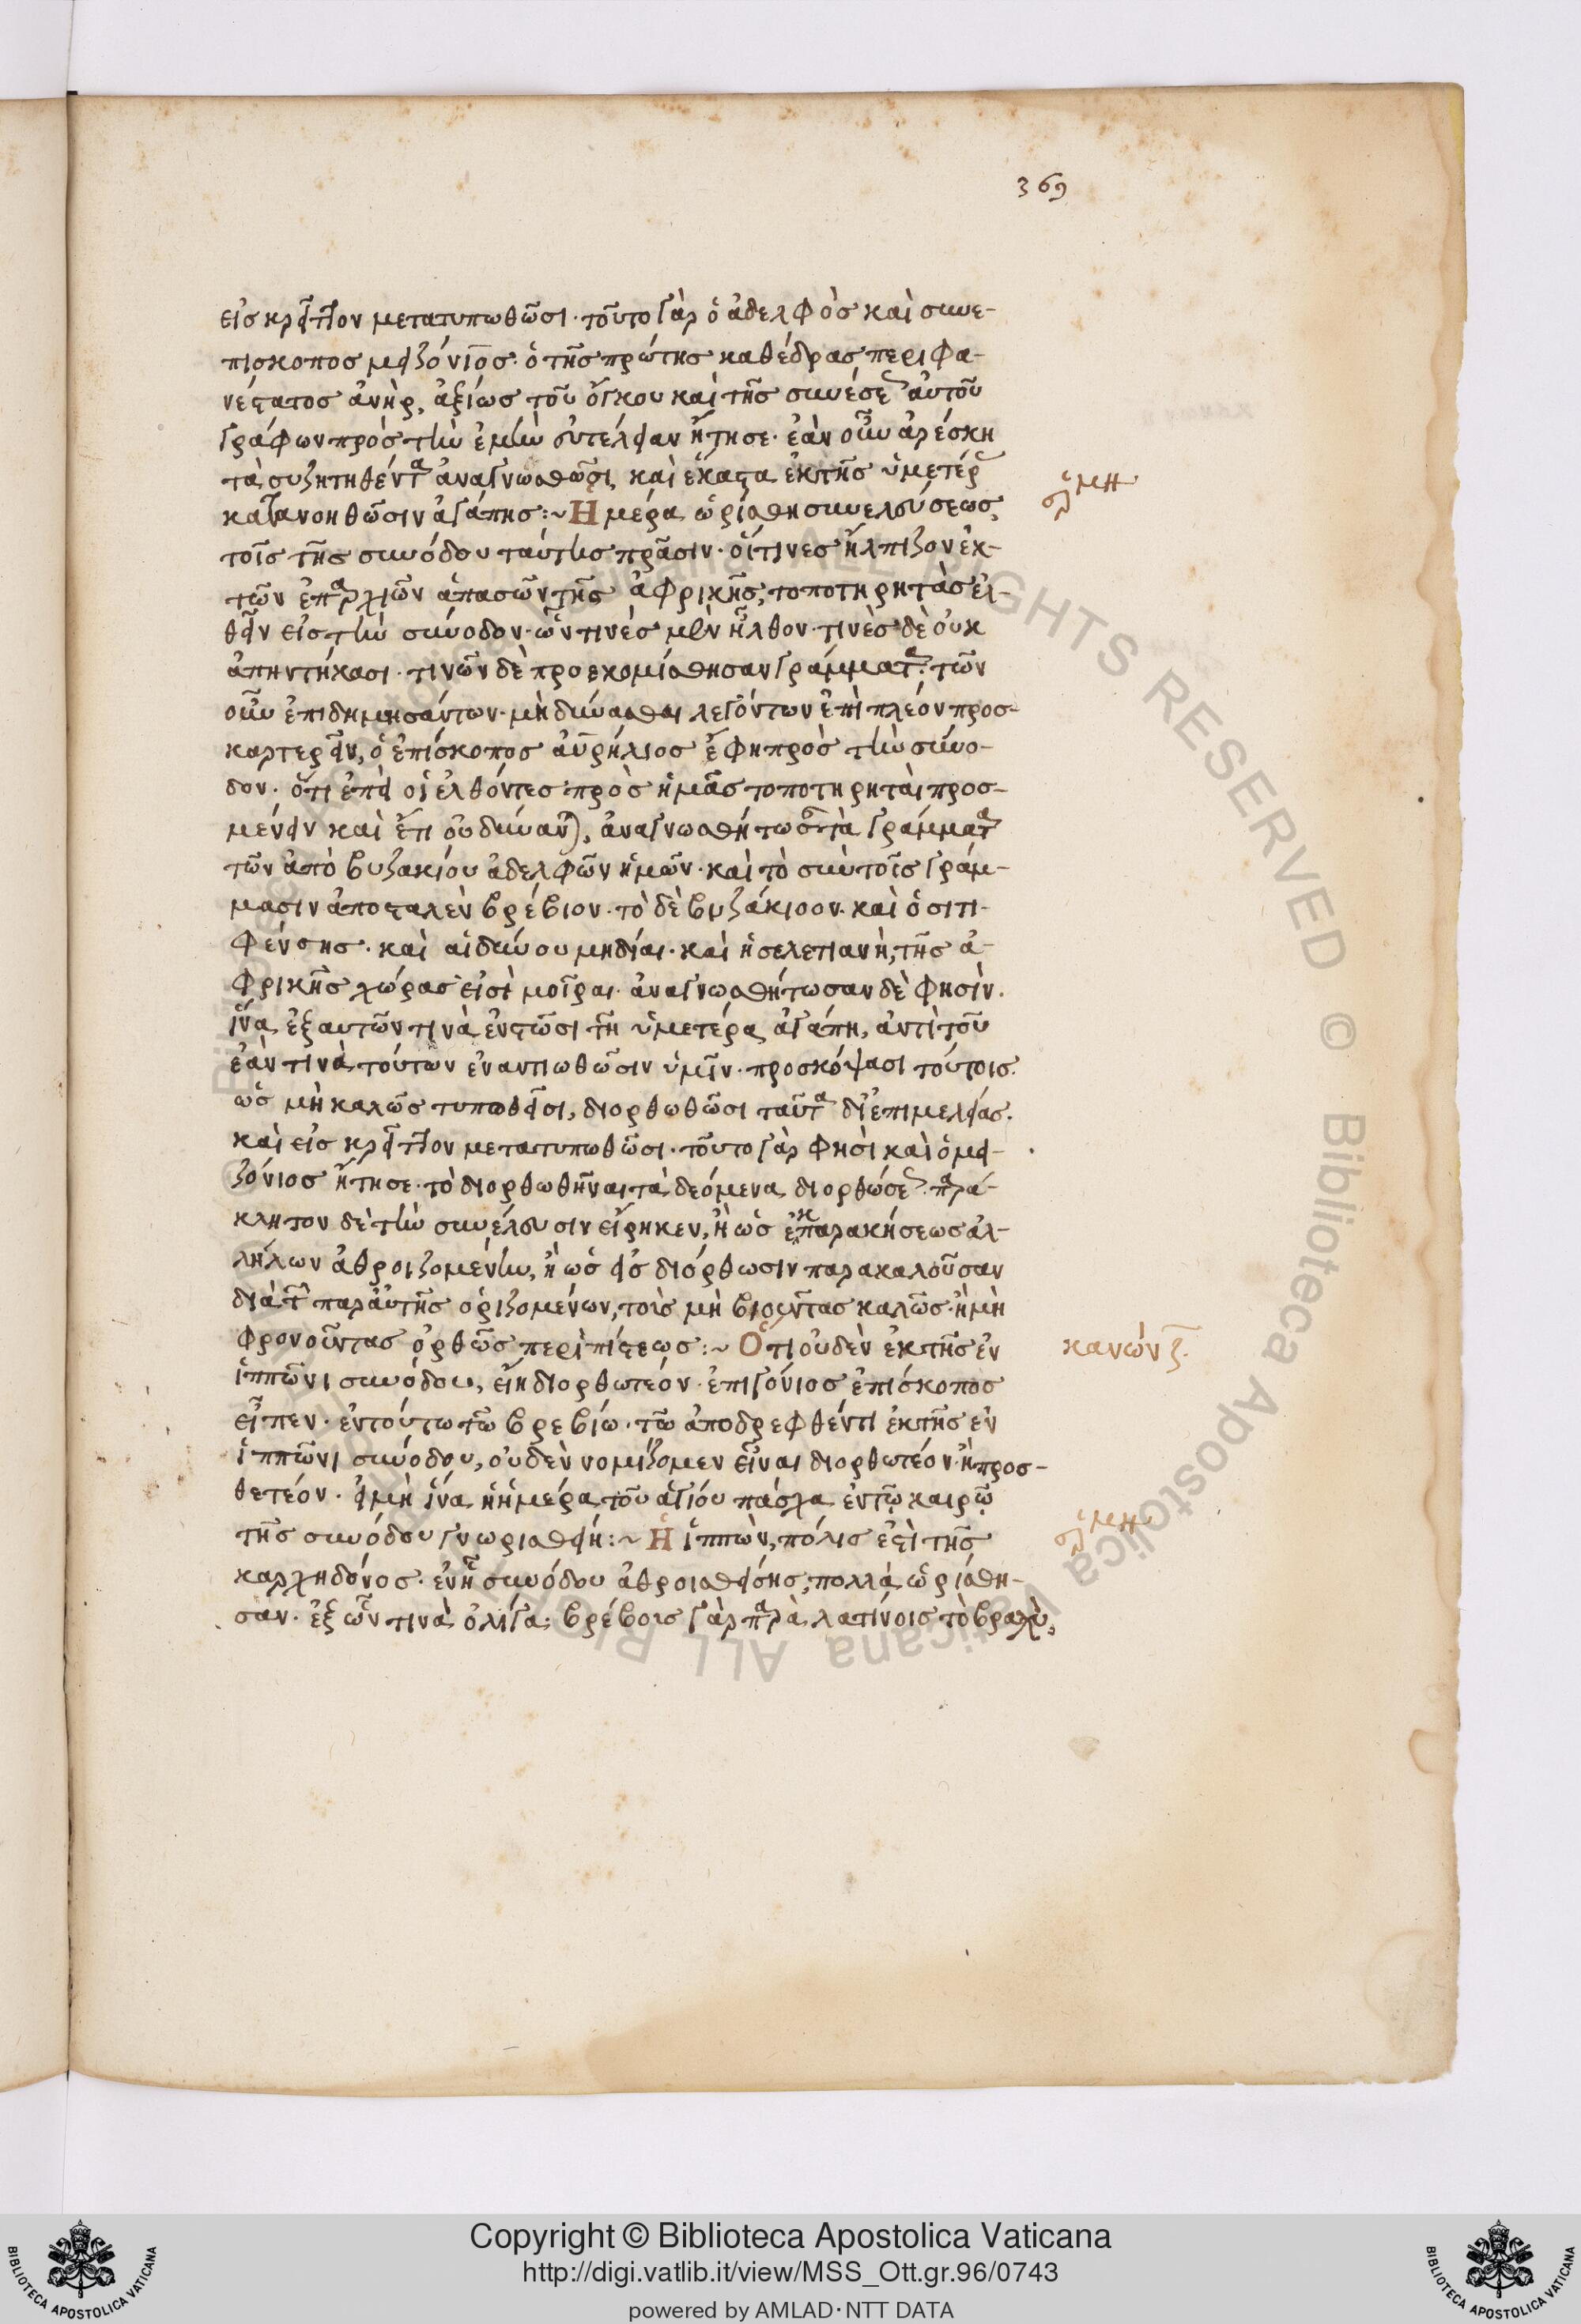 369
εἰς κρεῖττον μετατυπωθῶσι· τοῦτο γὰρ ὁ ἀδελφὸς καὶ συνε-
πίσκοπος μειζόνιος· ὁ τῆς πρώτης καθέδρας περιφα-
νέστατος ἀνὴρ, ἀξίως τοῦ ὄγκου καὶ τῆς συνέσεως αὐτοῦ
γράφων πρὸς τὴν ἐμὴν εὐτέλειαν ἤτησε· ἐὰν οὖν ἀρέσκη
τὰ συζητηθέντα ἀναγνωσθῶσι, καὶ ἕκαστα ἐκ τῆς ὑμετέρας
κατανοηθῶσιν ἀγάπης :~ Ἡμέρα ὡρίσθη συνελεύσεως,
ἑρμη
τοῖς τῆς συνόδου ταύτης πρᾶσιν· οἵτινες ἤλπιζον ἐκ-
τῶν ἐπαρχιῶν ἁπασῶν τῆς ἀφρικῆς, τοποτηρητὰς ἐλ-
θεῖν εἰς τὴν σύνοδον· ὧν τινὲς μὲν ἦλθον· τινὲς δὲ οὐκ
ἀπηντήκασι· τινῶν δὲ προεκομίσθησαν γράμματα· τῶν
οὖν ἐπιδημησάντων· μὴ δύνασθαι λεγόντων ἐπὶ πλέον προσ-
καρτερεῖν, ὁ ἐπίσκοπος αὐρήλιος ἔφη πρὸς τὴν σύνο-
δον· ὅτι ἐπεὶ οἱ ἐλθόντες πρὸς ἡμᾶς τοποτηρηταὶ προσ-
μένειν καὶ ἔτι οὐ δύνανται, ἀναγνωσθήτωσαν τὰ γράμματα
τῶν ἀπὸ βυζακίου ἀδελφῶν ἡμῶν· καὶ τὸ σὺν τοῖς γράμ-
μασιν ἀποσταλὲν βρέβιον· τὸ δὲ βυζάκιον· καὶ ὁ σιτι-
φένσης· καὶ αἱ δύο νουμηδίαι· καὶ ἡ σελετιανὴ, τῆς ἀ-
φρικῆς χώρας εἰσὶ μοῖραι· ἀναγνωσθήτωσαν δὲ φησὶν·
ἵνα ἐξ αυτῶν τινὰ ἐνστῶσι τῆ ὑμετέρα ἀγάπη, ἀντὶ τοῦ
ἐάν τινα τούτων ἐναντιωθῶσιν ὑμῖν· προσκόψασι τούτοις·
ὡς μὴ καλῶς τυπωθεῖσι, διορθωθῶσι ταῦτα δι' ἐπιμελείας·
καὶ εἰς κρεῖττον μετατυπωθῶσι· τοῦτο γὰρ φησὶ καὶ ὁ μει-
ζόνιος ἤτησε· τὸ διορθωθῆναι τὰ δεόμενα διορθώσεως· παρά-
κλητον δὲ τὴν συνέλευσιν εἴρηκεν, ἢ ὡς ἐκ παρακλήσεως ἀλ-
λήλων ἀθροιζομένην, ἢ ὡς εἰς διόρθωσιν παρακαλοῦσαν
διὰ τῶν παρ' αὐτῆς ὁριζομένων, τοὺς μὴ βιοῦντας καλῶς· ἢ μὴ
φρονοῦντας ὀρθῶς περὶ πίστεως :~ Ὅτι οὐδὲν ἐκ τῆς ἐν
κανών
ἱππῶνι συνόδου, εἴη διορθωτέον· ἐπιγόνιος ἐπίσκοπος
εἶπεν· ἐν τούτω τῶ βρεβίω· τῶ ἀποδρεφθέντι ἐκ τῆς ἐν
ἱππῶνι συνόδου, οὐδὲν νομίζομεν εἶναι διορθωτέον· ἢ προσ-
θετέον· εἰμὴ ἵνα ἡ ἡμέρα τοῦ ἁγίου πάσχα ἐν τῷ καιρῷ
τῆς συνόδου γνωρισθείη :~ Ἡ ἱππὼν, πόλις ἐστὶ τῆς
ἑρμη
καρχηδόνος· ἐν ἧ συνόδου ἀθροισθείσης, πολλὰ ὡρίσθη-
σαν· ἐξ ὧν τινὰ ὀλίγα· βρέβοις γὰρ παρὰ λατίνοις τὸ βραχὺ,
Copyright © Biblioteca Apostolica Vaticana
http://digi.vatlib.it/view/MSS_Ott.gr.96/0743
powered by AMLAD·NTT DATA
BIBLIOTECA APOSTOLICA VATICANA
BIBLIOTECA APOSTOLICA VATICANA